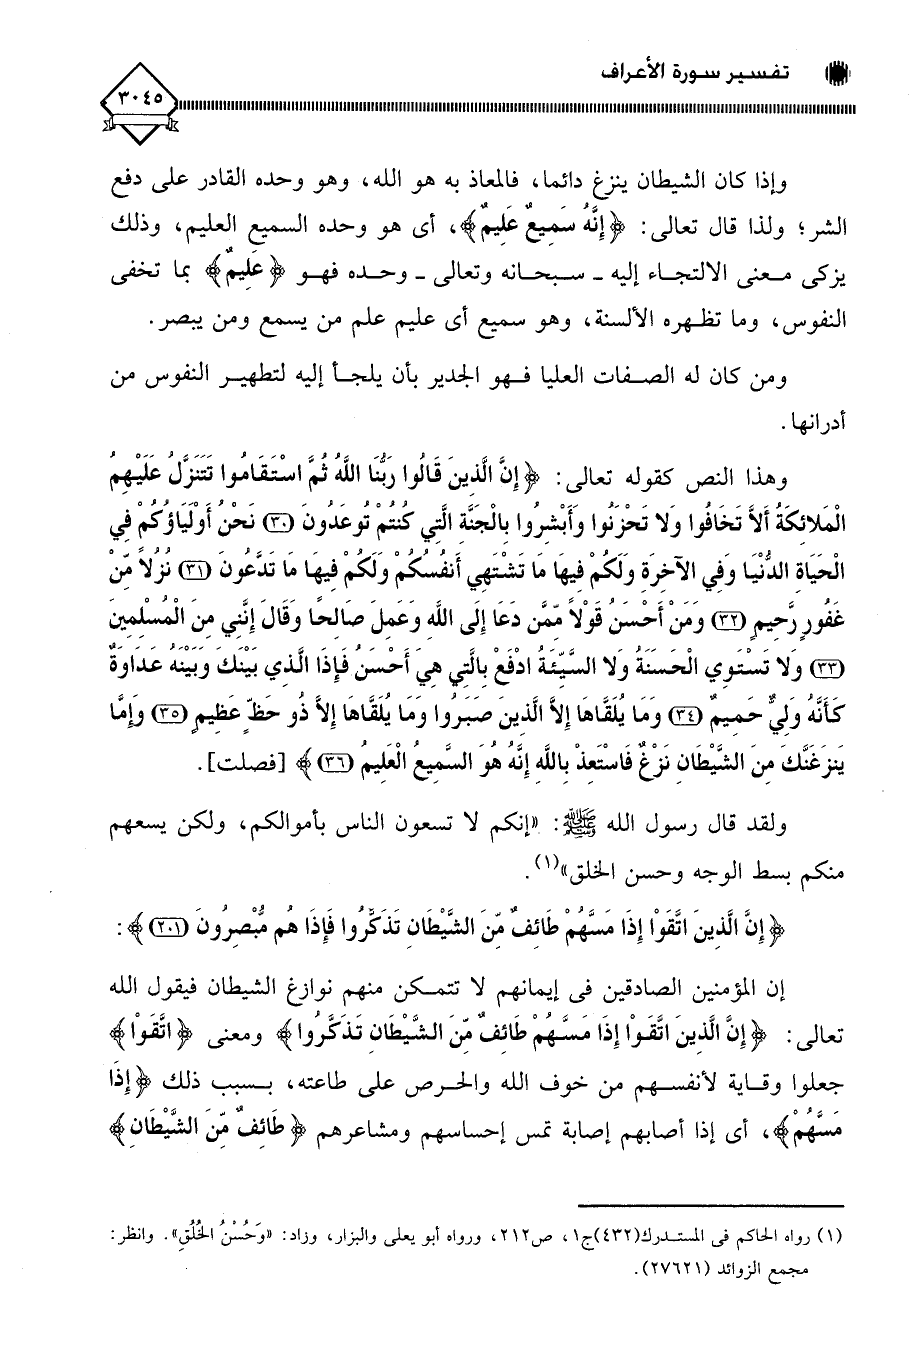 تفسير سورة الأعراف
٣٠٤٥
وإذا كان الشيطان ينزغ دائما، فالمعاذ به هو الله، وهو وحده القادر على دفع
الشر؛ ولذا قال تعالى: ﴿إِنَّهُ سَمِيعٌ عَلِيمٌ﴾، أى هو وحده السميع العليم، وذلك
يزكى معنى الالتجاء إليه ـ سبحانه وتعالى ـ وحده فهو ﴿عَلِيمٌ﴾ بما تخفى
النفوس، وما تظهره الألسنة، وهو سميع أى عليم علم من يسمع ومن يبصر.
ومن كان له الصفات العليا فهو الجدير بأن يلجأ إليه لتطهير النفوس من
أدرانها.
وهذا النص كقوله تعالى: ﴿إِنَّ الَّذِينَ قَالُوا رَبُّنَا اللَّهُ ثُمَّ اسْتَقَامُوا تَتَنَزَّلُ عَلَيْهِمُ
الْمَلائِكَةُ أَلاَّ تَخَافُوا وَلا تَحْزَنُوا وَأَبْشِرُوا بِالْجَنَّةِ الَّتِي كُنتُمْ تُوعَدُونَ (٣٠) نَحْنُ أَوْلِيَاؤُكُمْ فِي
الْحَيَاةِ الدُّنْيَا وَفِي الآخِرَةِ وَلَكُمْ فِيهَا مَا تَشْتَهِي أَنفُسُكُمْ وَلَكُمْ فِيهَا مَا تَدَّعُونَ (٣١) نُزُلاً مِّنْ
غَفُورٍ رَّحِيمٍ (٣٢) وَمَنْ أَحْسَنُ قَوْلاً مِّمَّن دَعَا إِلَى اللَّهِ وَعَمِلَ صَالِحًا وَقَالَ إِنَّنِي مِنَ الْمُسْلِمِينَ
(٣٣) وَلا تَسْتَوِي الْحَسَنَةُ وَلا السَّيِّئَةُ ادْفَعْ بِالَّتِي هِيَ أَحْسَنُ فَإِذَا الَّذِي بَيْنَكَ وَبَيْنَهُ عَدَاوَةٌ
كَأَنَّهُ وَلِيٌّ حَمِيمٌ (٣٤) وَمَا يُلَقَّاهَا إِلاَّ الَّذِينَ صَبَرُوا وَمَا يُلَقَّاهَا إِلاَّ ذُو حَظٍّ عَظِيمٍ (٣٥) وَإِمَّا
يَنزَغَنَّكَ مِنَ الشَّيْطَانِ نَزْغٌ فَاسْتَعِذْ بِاللَّهِ إِنَّهُ هُوَ السَّمِيعُ الْعَلِيمُ (٣٦)﴾ [فصلت].
ولقد قال رسول الله ﷺ: «إنكم لا تسعون الناس بأموالكم، ولكن يسعهم
منكم بسط الوجه وحسن الخلق»(١).
﴿إِنَّ الَّذِينَ اتَّقَوْا إِذَا مَسَّهُمْ طَائِفٌ مِّنَ الشَّيْطَانِ تَذَكَّرُوا فَإِذَا هُم مُّبْصِرُونَ (٢٠١)﴾:
إن المؤمنين الصادقين فى إيمانهم لا تتمكن منهم نوازغ الشيطان فيقول الله
تعالى: ﴿إِنَّ الَّذِينَ اتَّقَوْا إِذَا مَسَّهُمْ طَائِفٌ مِّنَ الشَّيْطَانِ تَذَكَّرُوا﴾ ومعنى ﴿اتَّقَوْا﴾
جعلوا وقاية لأنفسهم من خوف الله والحرص على طاعته، بسبب ذلك ﴿إِذَا
مَسَّهُمْ﴾، أى إذا أصابهم إصابة تمس إحساسهم ومشاعرهم ﴿طَائِفٌ مِّنَ الشَّيْطَانِ﴾
(١) رواه الحاكم فى المستدرك(٤٣٢)ج١، ص٢١٢، ورواه أبو يعلى والبزار، وزاد: «وَحُسْنُ الخُلُقِ». وانظر:
مجمع الزوائد (٢٧٦٢١).